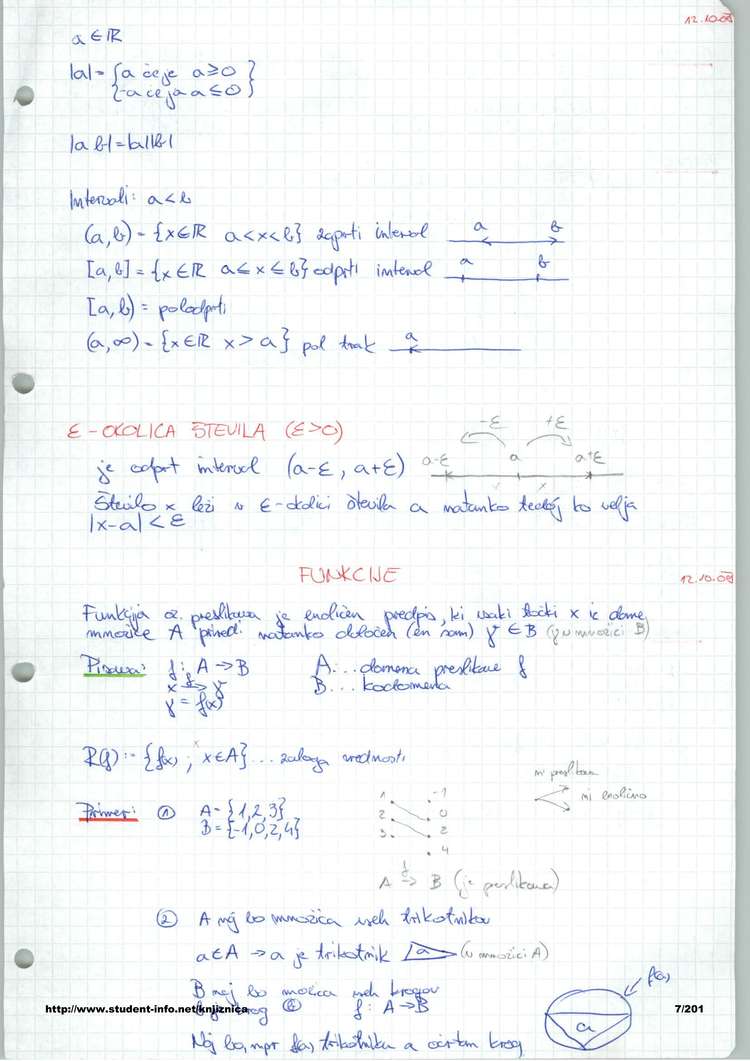 12.10.09
a ∈ ℝ
|a| = {a če je a ≥ 0
{-a če ja a ≤ 0}
|a b| = |a||b|
Intervali: a < b
(a, b) = {x ∈ ℝ a < x < b} zaprti interval a b
[a, b] = {x ∈ ℝ a ≤ x ≤ b} odprti interval a b
[a, b) = polodprti
(a, ∞) = {x ∈ ℝ x > a} pol trak a
ε - OKOLICA ŠTEVILA (ε > 0)
-ε +ε
je odprt interval (a-ε, a+ε) a-ε a a+ε
Število x leži v ε-okolici števila a natanko tedaj ko velja
|x-a| < ε
FUNKCIJE 12.10.09
Funkcija oz. preslikava je enoličen predpis, ki vsaki točki x iz dome
množice A priredi natanko določen (en sam) y ∈ B (y v množici B)
Pisava: f: A → B A... domena preslikave f
x →f y B... kodomena
y = f(x)
R(f) := {f(x) ; x ∈ A} ... zaloga vrednosti
ni preslikava
ni enolično
Primer: ① A = {1, 2, 3}
B = {-1, 0, 2, 4}
1. .-1
2. .0
3. .2
.4
A →f B (je preslikava)
② A naj bo množica vseh trikotnikov
a ∈ A → a je trikotnik a (v množici A)
B naj bo množica vseh krogov
krog f: A → B
http://www.student-info.net/knjiznica 7/201
f(a)
a
Naj bo npr f(a) trikotniku a očrtan krog